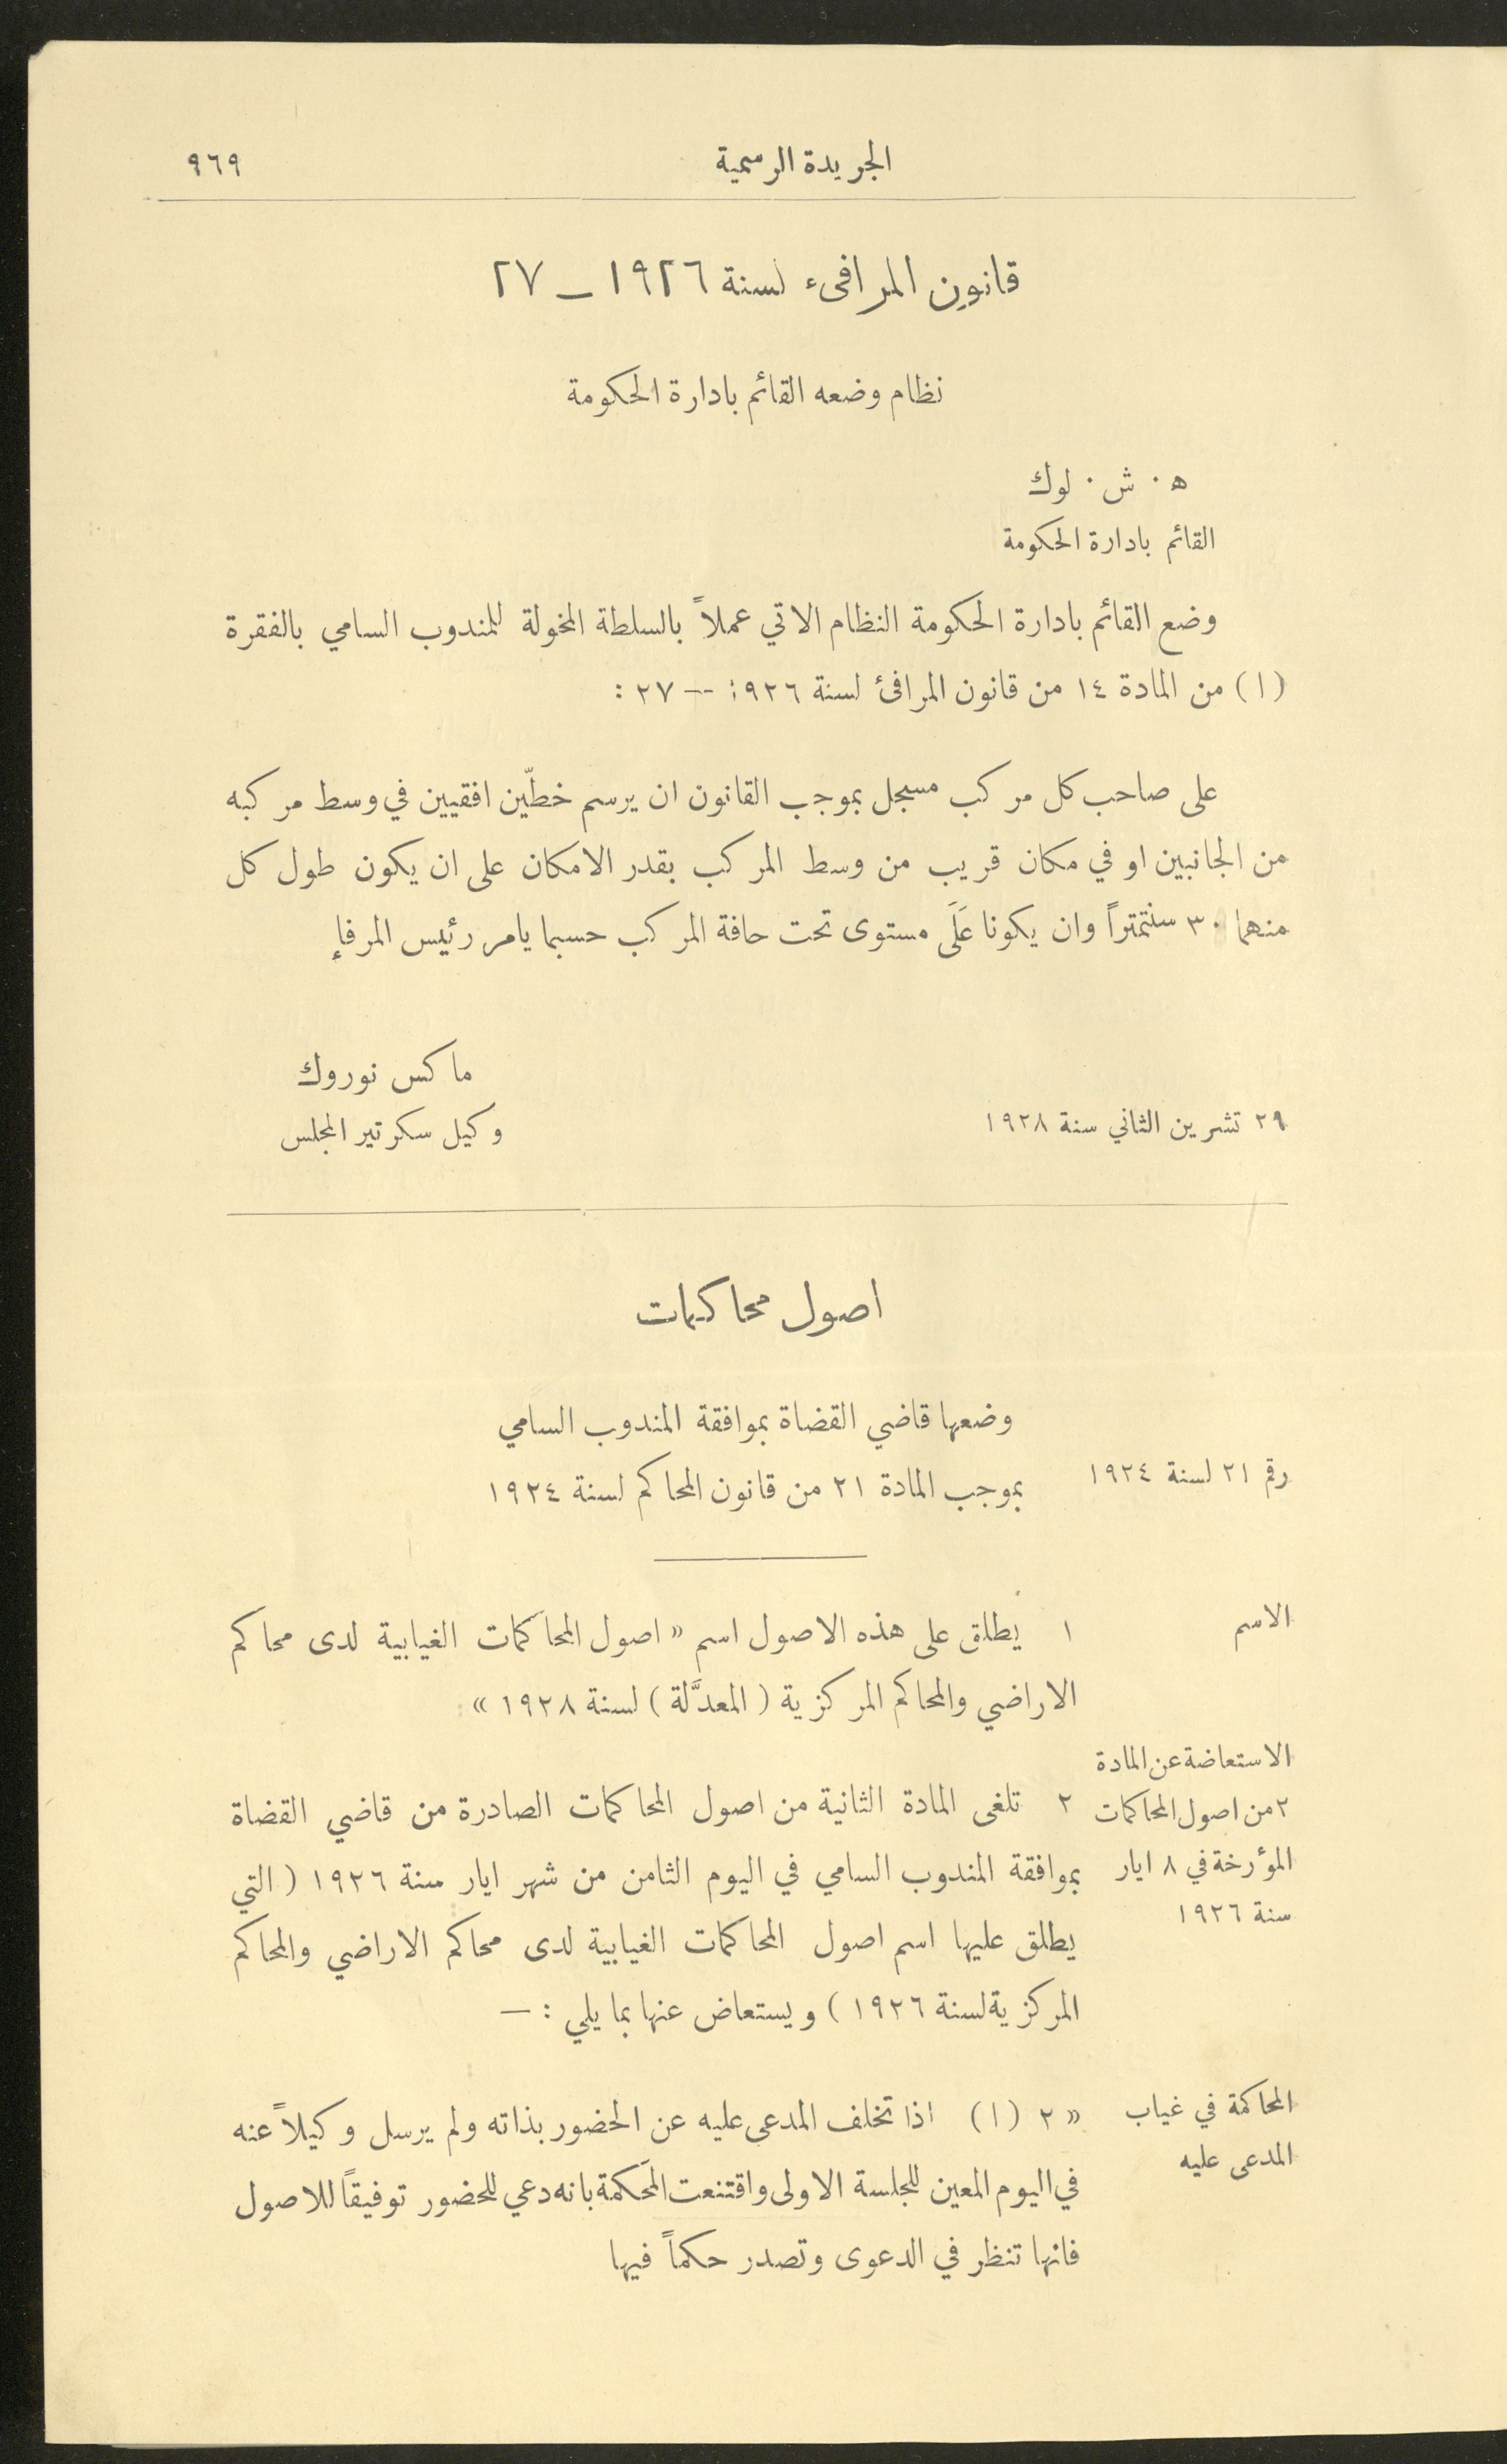 الجريدة الرسمية ٩٦٩
قانون المرافىء لسنة ١٩٢٦ – ٢٧
نظام وضعه القائم بادارة الحكومة
ه . ش . لوك
القائم بادارة الحكومة
وضع القائم بادارة الحكومة النظام الاتي عملاً بالسلطة المخولة للمندوب السامي بالفقرة
(ا) من المادة ١٤ من قانون المرافئ لسنة ١٩٢٦ -- ٢٧ :
على صاحب كل مركب مسجل بموجب القانون ان يرسم خطّين افقيين في وسط مركبه
من الجانبين او في مكان قريب من وسط المركب بقدر الامكان على ان يكون طول كل
منهما ٣٠ سنتمتراً وان يكونا عَلَى مستوى تحت حافة المركب حسبما يامر رئيس المرفإ
ماكس نوروك
٢٩ تشرين الثاني سنة ١٩٢٨
وكيل سكرتير المجلس
اصول محاكمات
وضعها قاضي القضاة بموافقة المندوب السامي
رقم ٢١ لسنة ١٩٢٤
بموجب المادة ٢١ من قانون المحاكم لسنة ١٩٢٤
الاسم
١ يطلق على هذه الاصول اسم « اصول المحاكمات الغيابية لدى محاكم
الاراضي والمحاكم المركزية ( المعدَّلة ) لسنة ١٩٢٨ »
الاستعاضة عن المادة
٢ من اصول المحاكمات
المؤرخة في ٨ ايار
سنة ١٩٢٦
٢ تلغى المادة الثانية من اصول المحاكمات الصادرة من قاضي القضاة
بموافقة المندوب السامي في اليوم الثامن من شهر ايار سنة ١٩٢٦ ( التي
يطلق عليها اسم اصول المحاكمات الغيابية لدى محاكم الاراضي والمحاكم
المركزية لسنة ١٩٢٦ ) ويستعاض عنها بما يلي : —
المحاكمة في غياب
المدعى عليه
« ٢ (ا) اذا تخلف المدعى عليه عن الحضور بذاته ولم يرسل وكيلاً عنه
في اليوم المعين للجلسة الاولى واقتنعت المحكمة بانه دعي للحضور توفيقاً للاصول
فانها تنظر في الدعوى وتصدر حكماً فيها